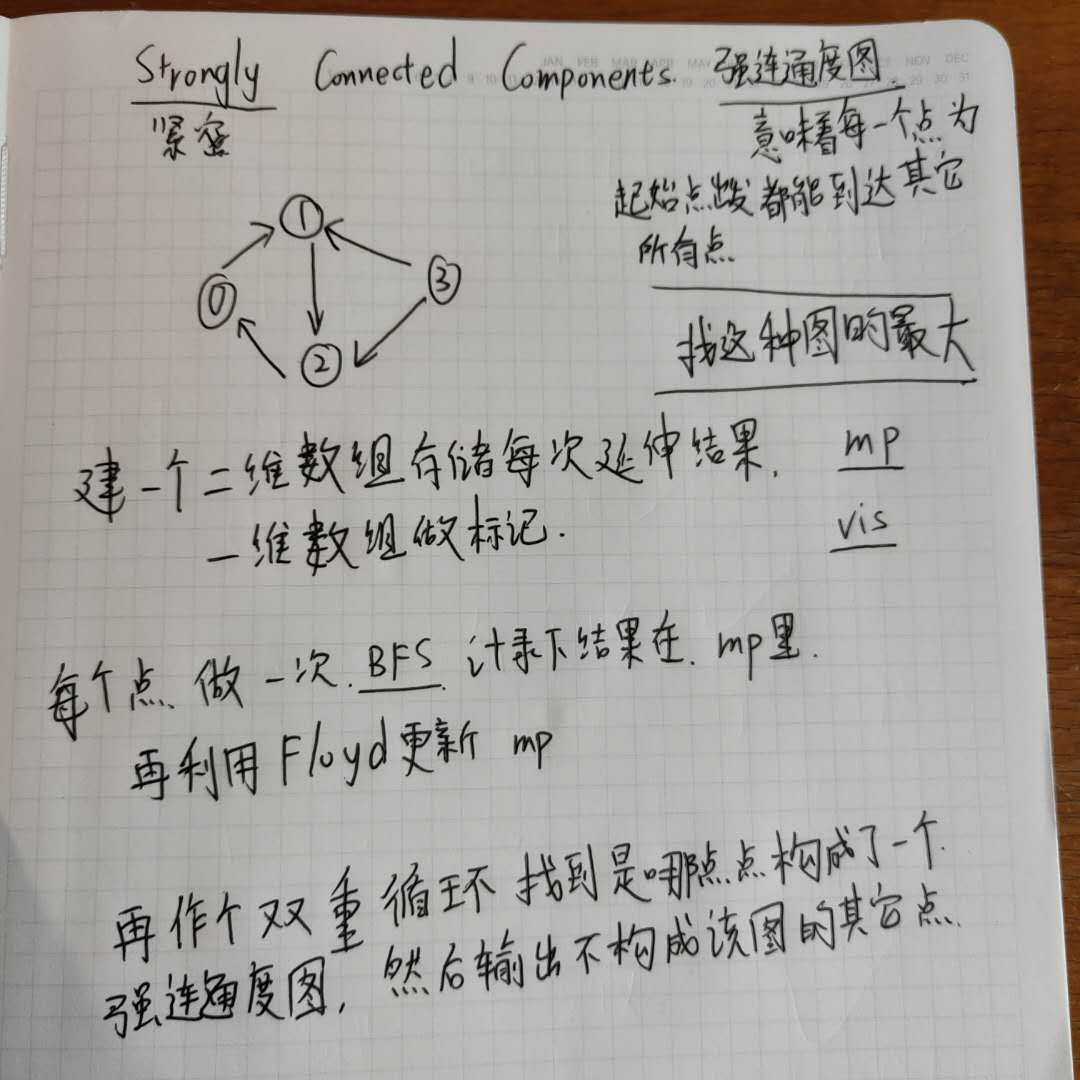 Strongly Connected Components. 强连通度图.
紧密
意味着每一个点为
起始点出发都能到达其它
所有点
①
⓪
③
②
找这种图的最大
建一个二维数组存储每次延伸结果. mp
一维数组做标记. vis
每个点做一次. BFS. 计录下结果在. mp里.
再利用Floyd更新 mp
再作个双重循环 找到是哪点点构成了一个.
强连通度图, 然后输出不构成该图的其它点.